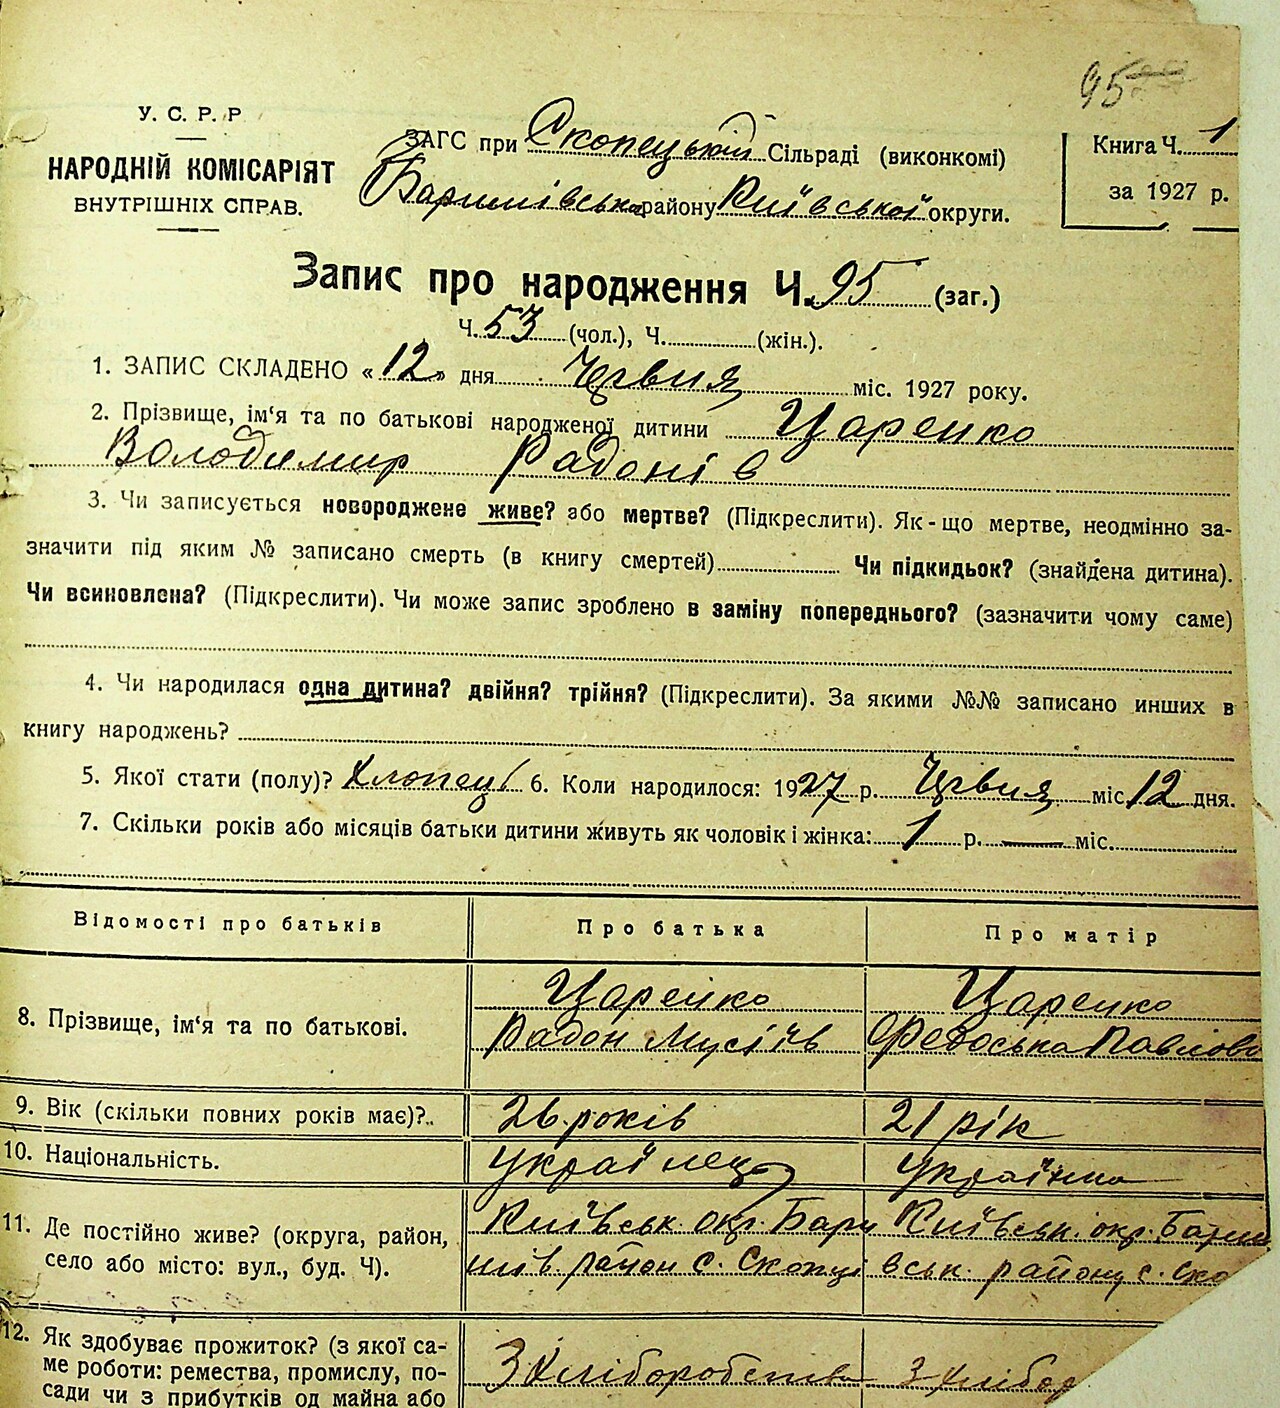 95
У. С. Р. Р
НАРОДНІЙ КОМІСАРІЯТ
ВНУТРІШНІХ СПРАВ.
ЗАГС при Скопецькій Сільраді (виконкомі)
Баришівська району Київської округи.
Книга Ч. 1
за 1927 р.
Запис про народження Ч. 95 (заг.)
Ч. 53 (чол.), Ч. (жін.).
1. ЗАПИС СКЛАДЕНО «12» дня Червня міс. 1927 року.
2. Прізвище, ім‘я та по батькові народженої дитини Царенко
Володимир Радонів
3. Чи записується новороджене живе? або мертве? (Підкреслити). Як-що мертве, неодмінно за-
значити під яким № записано смерть (в книгу смертей) Чи підкидьок? (знайдена дитина).
Чи всиновлена? (Підкреслити). Чи може запис зроблено в заміну попереднього? (зазначити чому саме)
4. Чи народилася одна дитина? двійня? трійня? (Підкреслити). За якими №№ записано инших в
книгу народжень?
5. Якої стати (полу)? Хлопець 6. Коли народилося: 1927 р. Червня міс 12 дня.
7. Скільки років або місяців батьки дитини живуть як чоловік і жінка: 1 р. — міс.
Відомості про батьків Про батька Про матір
8. Прізвище, ім‘я та по батькові. Царенко Радон Мусіїв Царенко Федоська Павлова
9. Вік (скільки повних років має)?.. 26 років 21 рік
10. Національність. Українець Українка
11. Де постійно живе? (округа, район, Київськ. окр. Бари Київськ. окр. Бариш
село або місто: вул., буд. Ч). шів. район с. Скопці вськ. району с. Ско
12. Як здобуває прожиток? (з якої са-
ме роботи: ремества, промислу, по- З Хліборобства З Хлібор
сади чи з прибутків од майна або